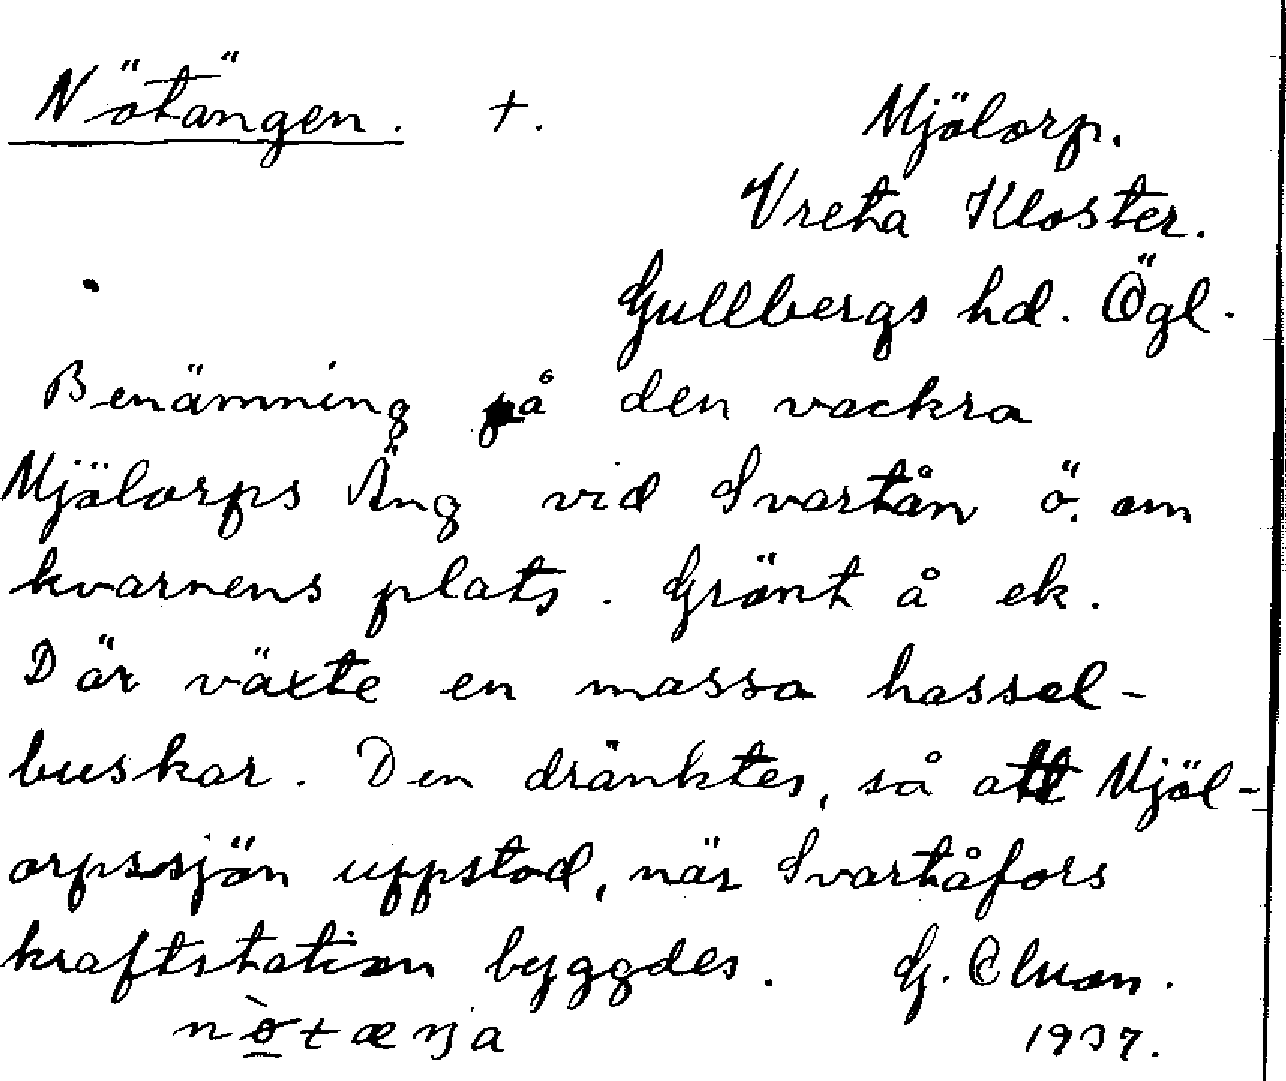 Nötängen. +.
Mjölorp.
Vreta Kloster.
Gullbergs hd. Ögl.
Benämning på den vackra
Mjölorps Äng vid Svartån ö. om
kvarnens plats. Grönt å ek.
Där växte en massa hassel-
buskar. Den dränktes, så att Mjöl-
orpssjön uppstod, när Svartåfors
kraftstation byggdes. G.
1937.